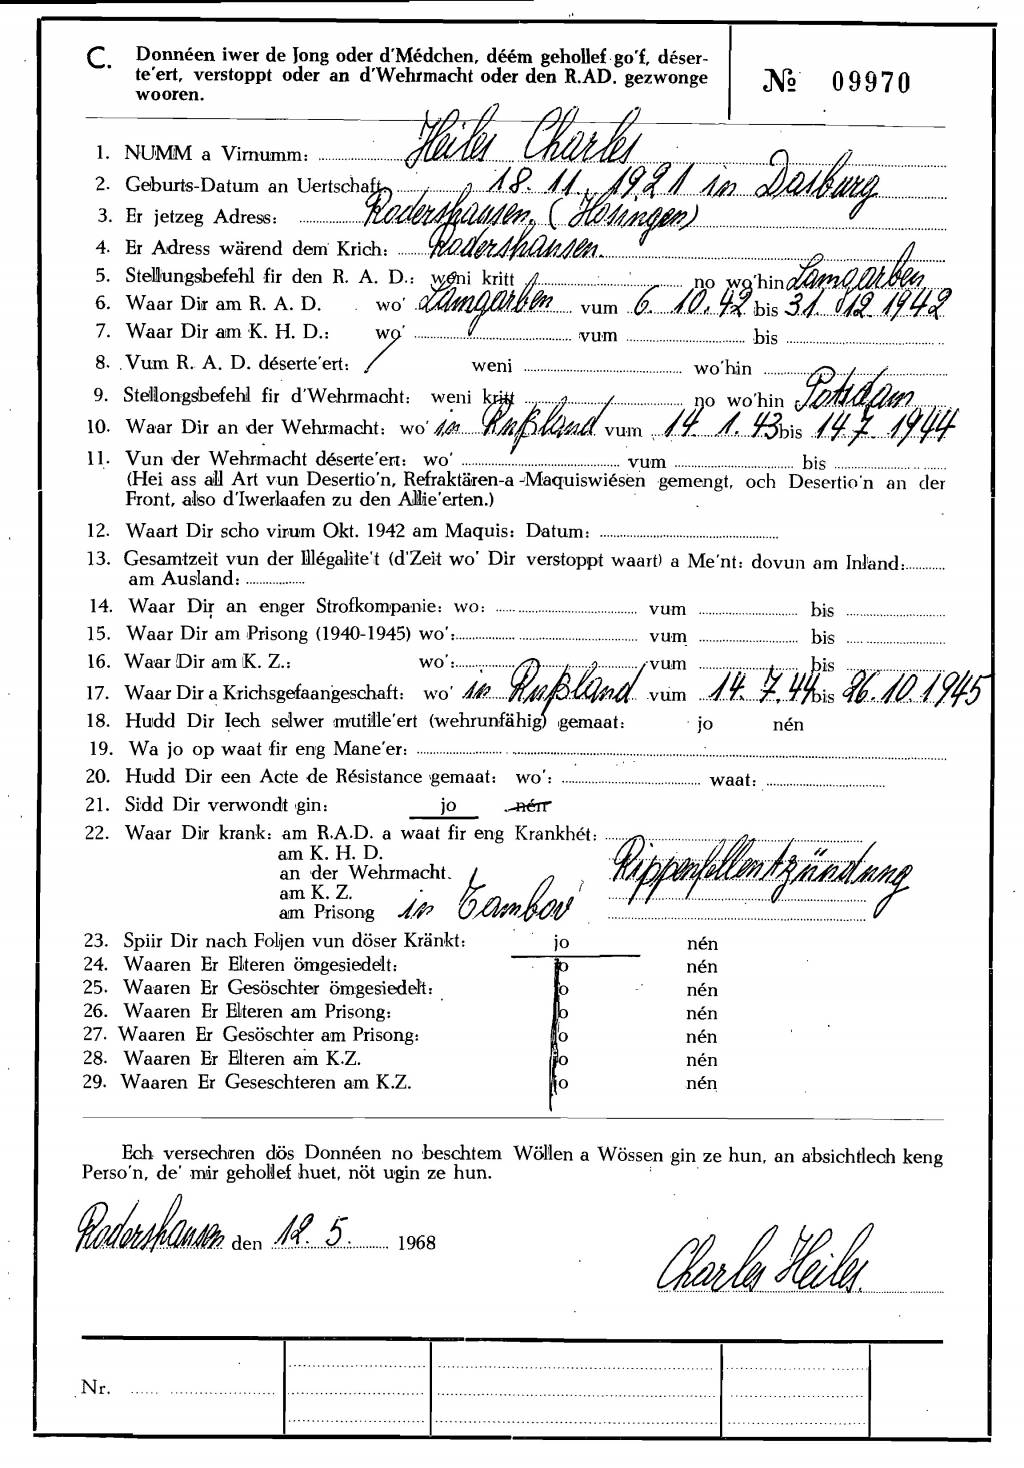 C. Donnéen iwer de Jong oder d'Médchen, déém gehollef go'f, déser-
te'ert, verstoppt oder an d'Wehrmacht oder den R.AD. gezwonge
wooren.
№ 09970
1. NUMM a Virnumm: Heiles Charles
2. Geburts-Datum an Uertschaft 18. 11. 1921 in Dasburg
3. Er jetzeg Adress: Rodershausen. (Hosingen)
4. Er Adress wärend dem Krich: Rodershausen.
5. Stellungsbefehl fir den R. A. D.: weni kritt / no wo'hin Lamgarben
6. Waar Dir am R. A. D. wo' Lamgarben vum 6. 10. 42 bis 31. 12. 1942
7. Waar Dir am K. H. D.: wo' vum bis
8. Vum R. A. D. déserte'ert: / weni wo'hin
9. Stellongsbefehl fir d'Wehrmacht: weni kritt / no wo'hin Potsdam
10. Waar Dir an der Wehrmacht: wo' in Rußland vum 14. 1. 43 bis 14. 7. 1944
11. Vun der Wehrmacht déserte'ert: wo' vum bis
(Hei ass all Art vun Desertio'n, Refraktären-a -Maquiswiésen gemengt, och Desertio'n an der
Front, also d'Iwerlaafen zu den Allie'erten.)
12. Waart Dir scho virum Okt. 1942 am Maquis: Datum:
13. Gesamtzeit vun der Illégalite't (d'Zeit wo' Dir verstoppt waart) a Me'nt: dovun am Inland:
am Ausland:
14. Waar Dir an enger Strofkompanie: wo: vum bis
15. Waar Dir am Prisong (1940-1945) wo': vum bis
16. Waar Dir am K. Z.: wo': vum bis
17. Waar Dir a Krichsgefaangeschaft: wo' in Rußland vum 14. 7. 44 bis 26. 10. 1945
18. Hudd Dir Iech selwer mutille'ert (wehrunfähig) gemaat: jo nén
19. Wa jo op waat fir eng Mane'er:
20. Hudd Dir een Acte de Résistance gemaat: wo': waat:
21. Sidd Dir verwondt gin: jo nén
22. Waar Dir krank: am R.A.D. a waat fir eng Krankhét:
am K. H. D.
an der Wehrmacht. Rippenfellentzündung
am K. Z.
am Prisong in Tambov
23. Spiir Dir nach Foljen vun döser Kränkt: jo nén
24. Waaren Er Elteren ömgesiedelt: jo nén
25. Waaren Er Gesöschter ömgesiedelt: jo nén
26. Waaren Er Elteren am Prisong: jo nén
27. Waaren Er Gesöschter am Prisong: jo nén
28. Waaren Er Elteren am K.Z. jo nén
29. Waaren Er Geseschteren am K.Z. jo nén
Ech versechren dös Donnéen no beschtem Wöllen a Wössen gin ze hun, an absichtlech keng
Perso'n, de' mir gehollef huet, nöt ugin ze hun.
Rodershausen den 12. 5. 1968
Charles Heiles.
Nr.